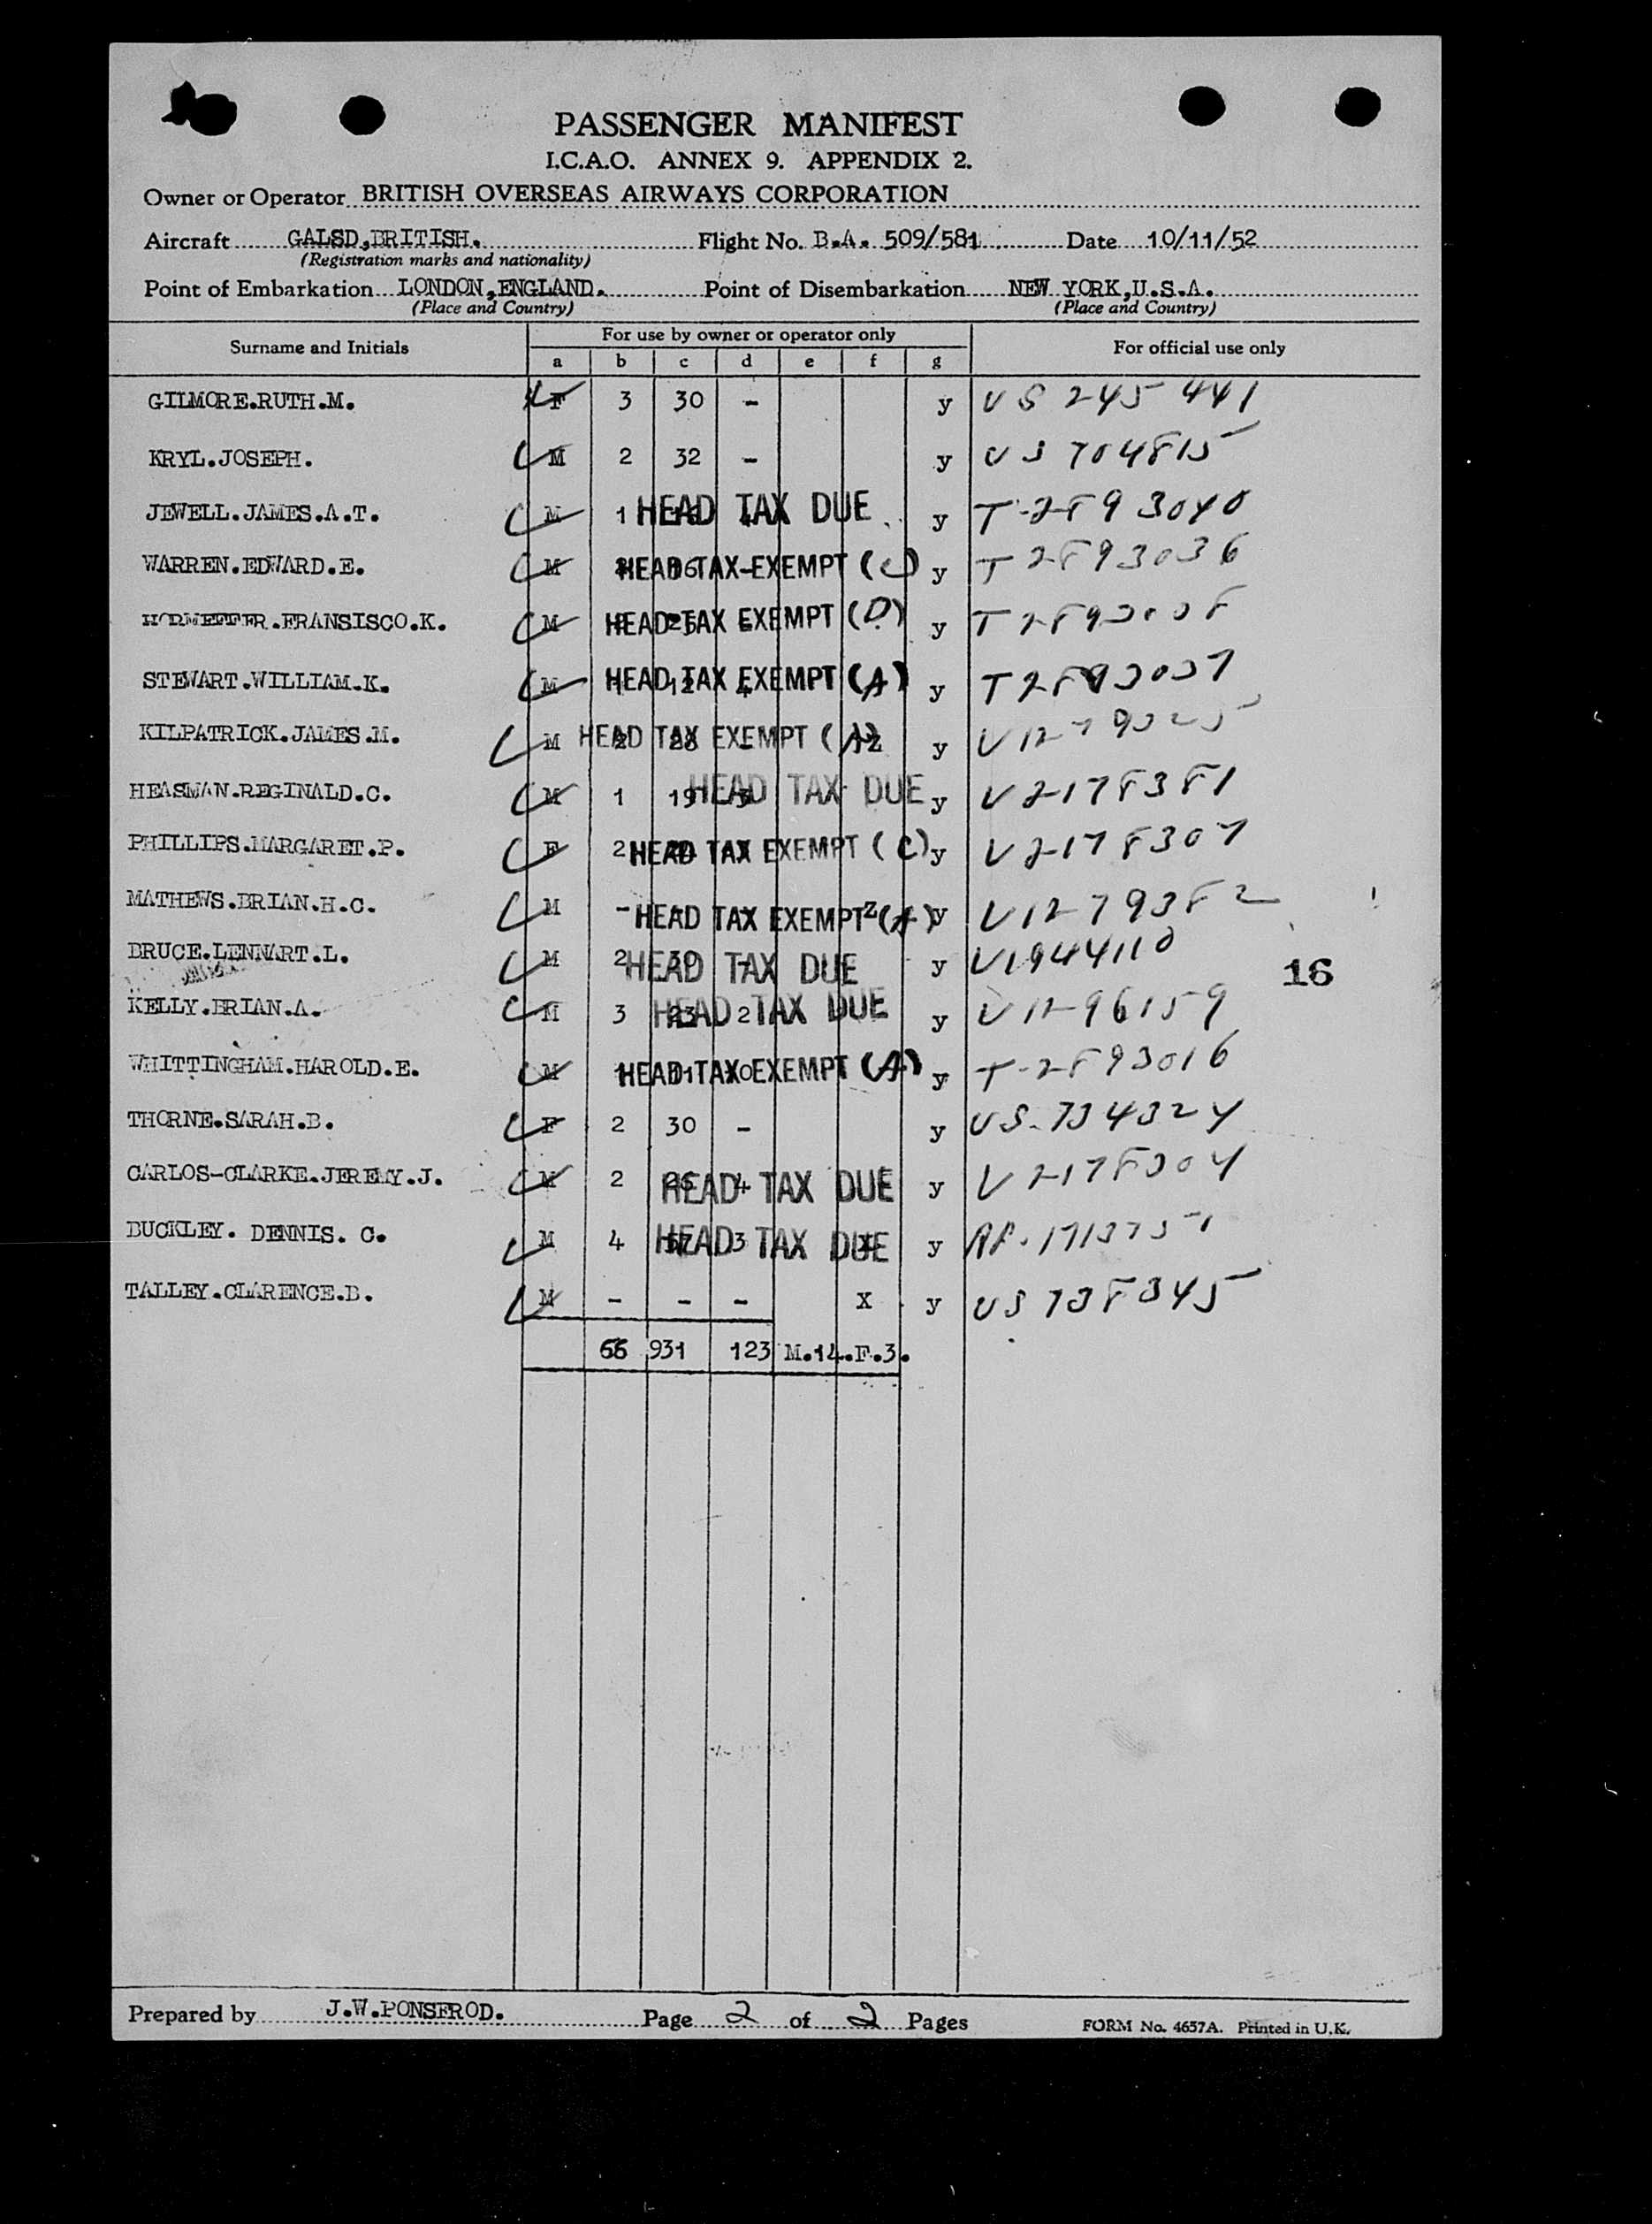 PASSENGER MANIFEST
I.C.A.O. ANNEX 9. APPENDIX 2.
Owner or Operator BRITISH OVERSEAS AIRWAYS CORPORATION
Aircraft GALSD,BRITISH. Flight No. B.A. 509/581 Date 10/11/52
(Registration marks and nationality)
Point of Embarkation LONDON,ENGLAND. Point of Disembarkation NEW YORK,U.S.A.
(Place and Country) (Place and Country)
Surname and Initials For use by owner or operator only For official use only
a b c d e f g
GILMORE.RUTH.M. F 3 30 - y US 245 441
KRYL.JOSEPH. M 2 32 - y US 704815
JEWELL.JAMES.A.T. M 1 HEAD TAX DUE y T-2893040
WARREN.EDWARD.E. M HEAD TAX EXEMPT (C) y T 2893036
FRANSISCO.K. M HEAD TAX EXEMPT (D) y
STEWART.WILLIAM.K. M HEAD TAX EXEMPT (A) y T2893037
KILPATRICK.JAMES.M. M 2 28 HEAD TAX EXEMPT (A) y
HEASMAN.REGINALD.C. M 1 19 HEAD TAX DUE y V2178381
PHILLIPS.MARGARET.P. F 2 HEAD TAX EXEMPT (C) y V2178307
MATHEWS.BRIAN.H.C. M - HEAD TAX EXEMPT (A) y V1279382
BRUCE.LENNART.L. M 2 30 HEAD TAX DUE y V1944110
16
KELLY.BRIAN.A. M 3 23 2 HEAD TAX DUE y V1296159
WHITTINGHAM.HAROLD.E. M HEAD TAX EXEMPT (A) y T-2893016
THORNE.SARAH.B. F 2 30 - y US.734324
CARLOS-CLARKE.JEREMY.J. M 2 4 HEAD TAX DUE y V2178304
BUCKLEY. DENNIS. C. M 4 3 HEAD TAX DUE y
TALLEY.CLARENCE.B. M - - - X y US 738345
66 931 123 M.14.F.3.
Prepared by J.W.PONSFROD. Page 2 of 2 Pages FORM No. 4657A. Printed in U.K.